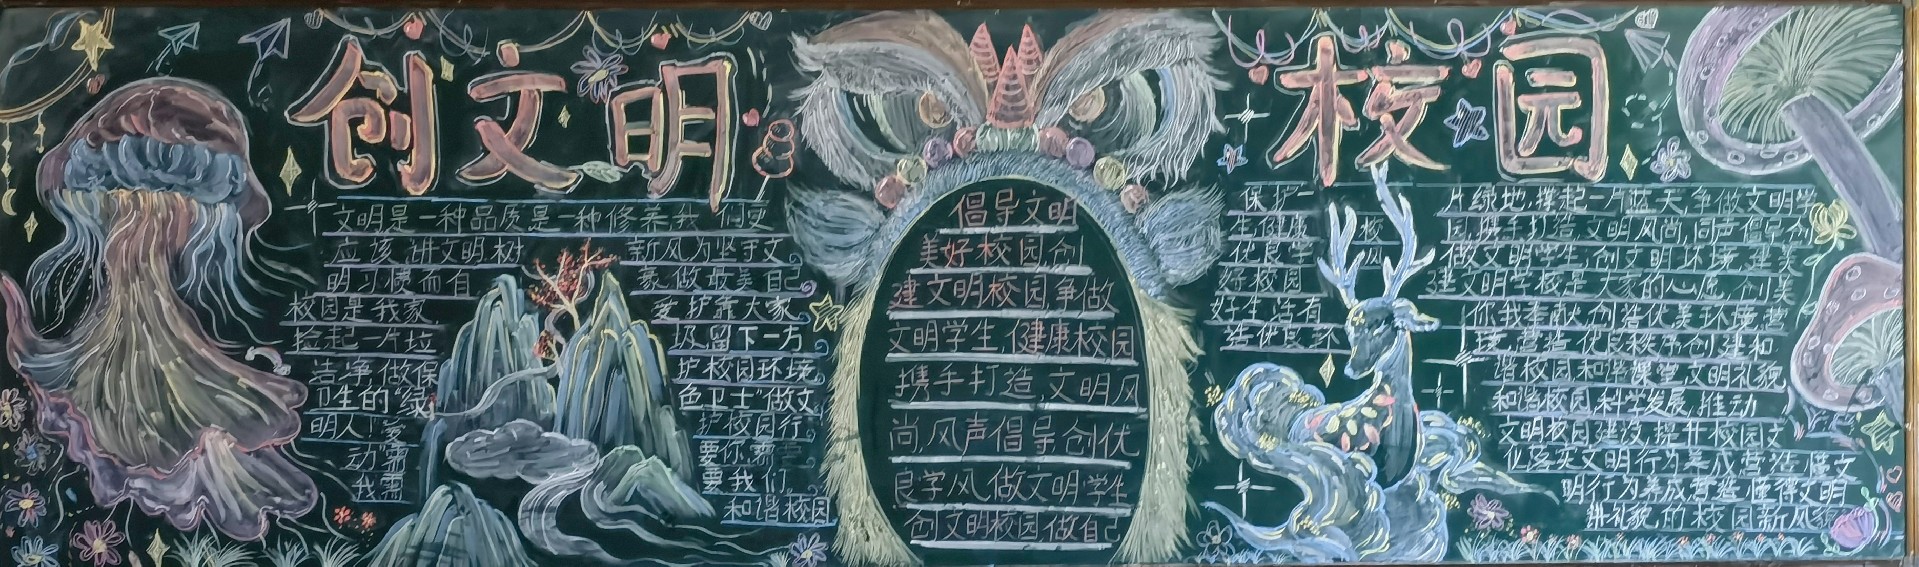 创文明
校园
文明是一种品质是一种修养我们更
应该讲文明树 新风为坚手文
明习惯而自 豪做最美自己
校园是我家 爱护靠大家
捡起一片垃 圾留下一方
洁净做保 护校园环境
卫生的“绿 色卫士”做文
明人 爱 护校园行
动需 要你需
我需 要我们
和谐校园
倡导文明
美好校园创
建文明校园争做
文明学生健康校园
携手打造文明风
尚风声倡导创优
良学风做文明学生
创文明校园做自己
保护一 片绿地撑起一片蓝天争做文明学
生健康 校 园携手打造文明风尚同声倡导创
优良学 风 做文明学生创文明环境建美
好校园 建文明学校是大家的心愿创美
好生活有 你我奉献创造优美环境营
造优良环 境营造优良秩序创建和
谐校园和谐课堂文明礼貌
和谐校园科学发展推动
文明校园建设提升校园文
化落实文明行为养成营造懂文
明行为养成营造懂得文明
讲礼貌的校园新风貌